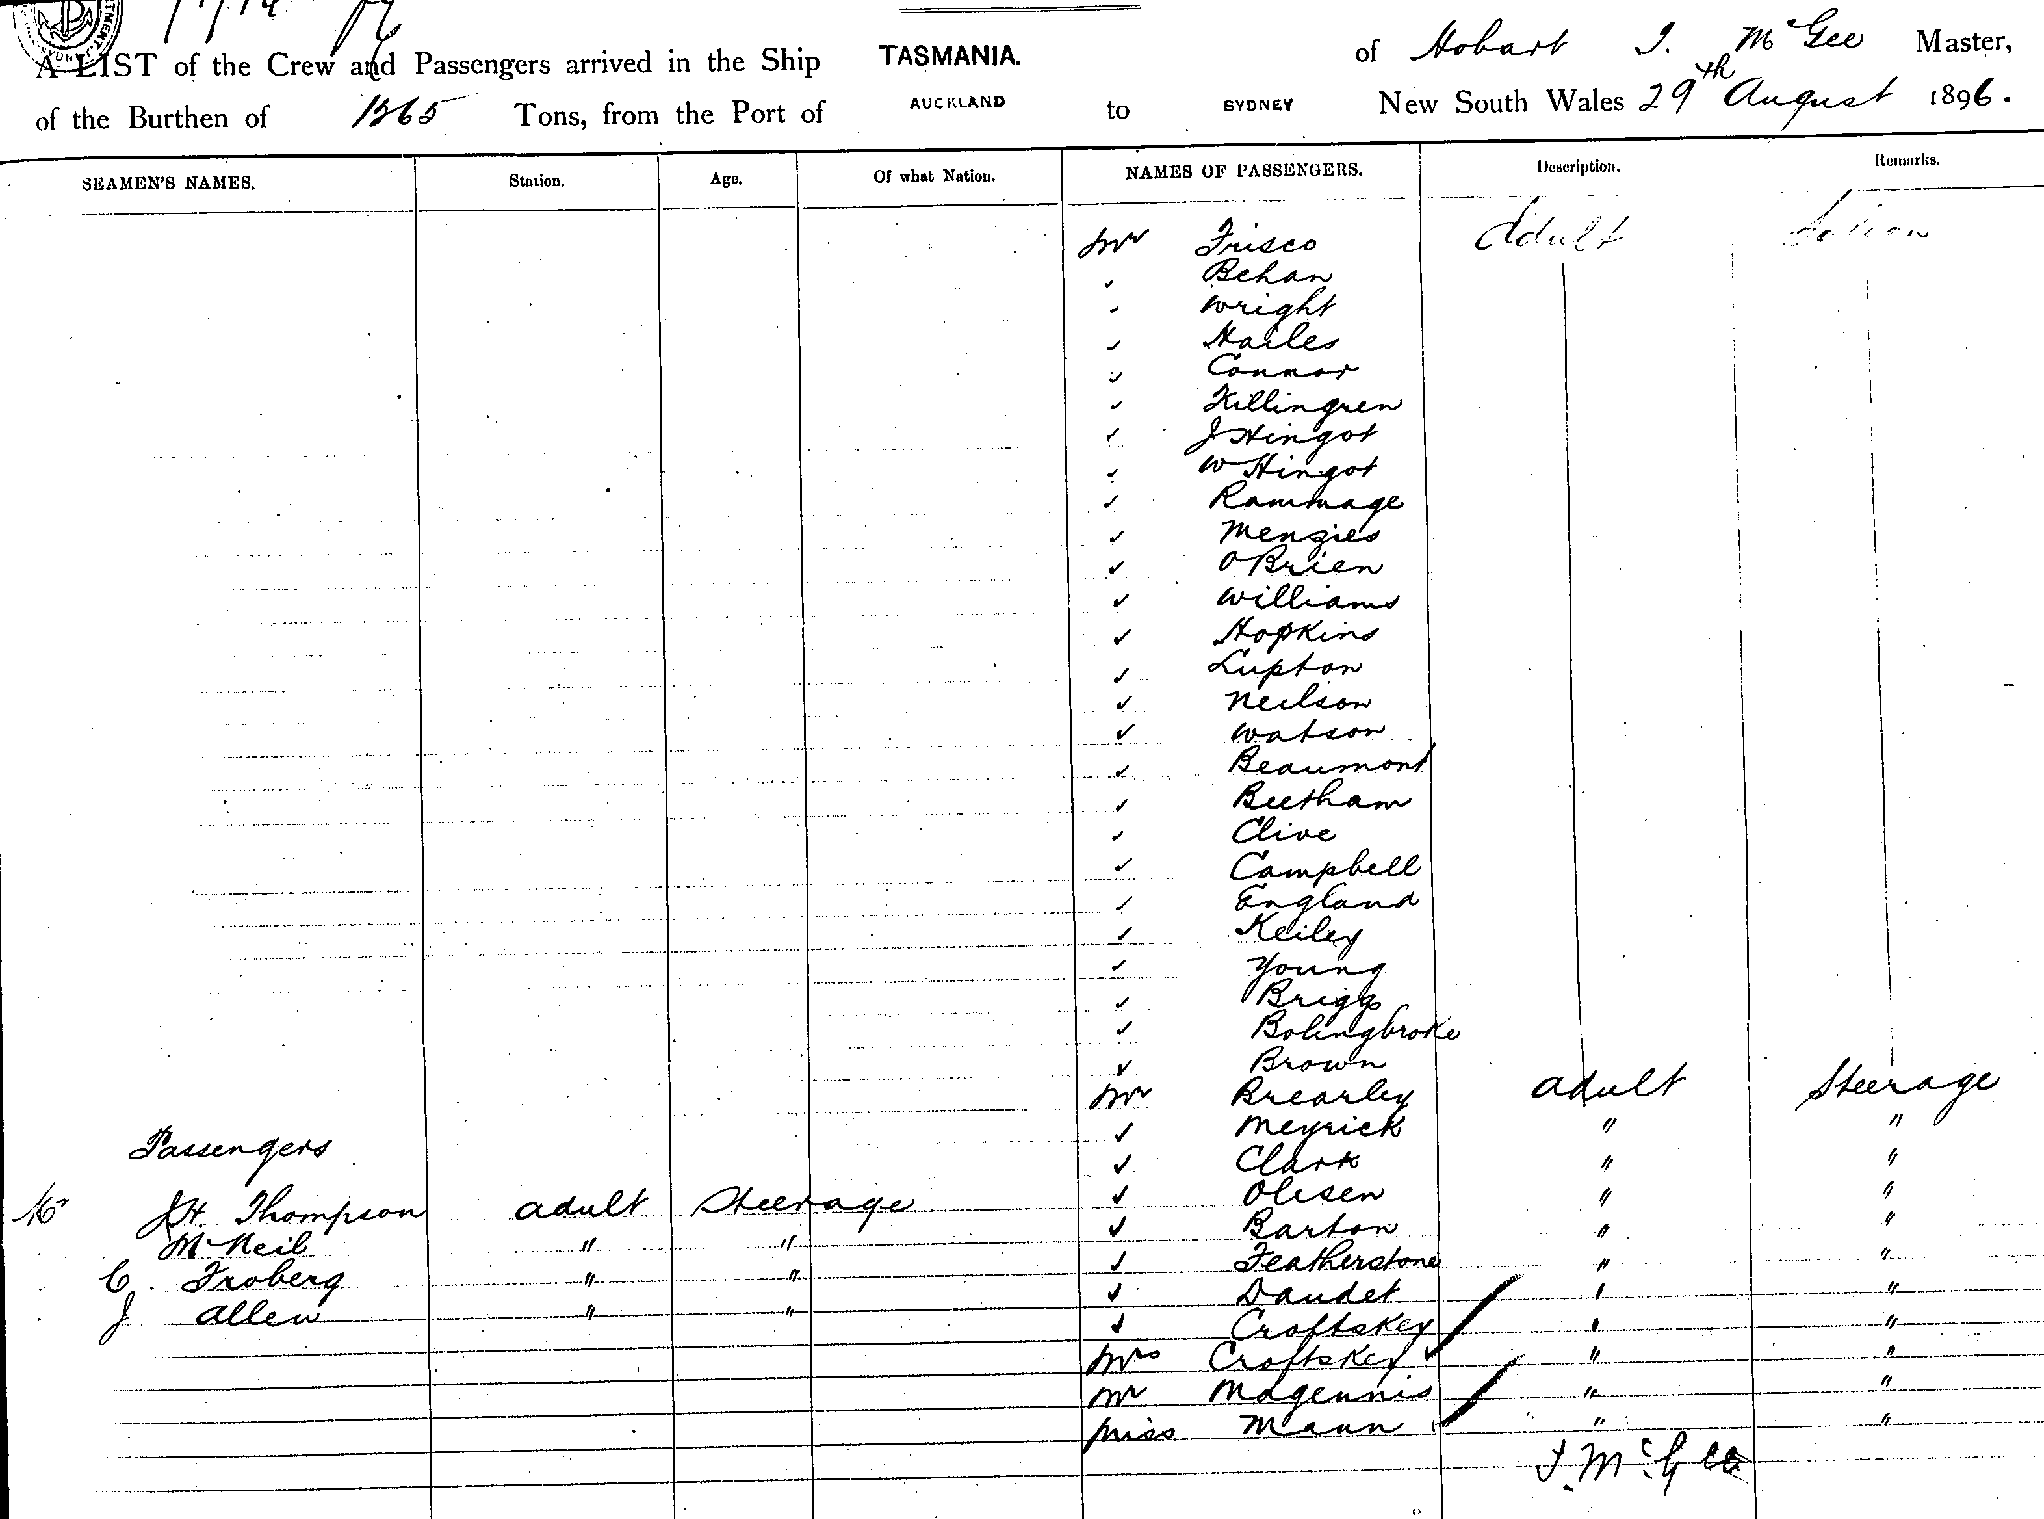 A LIST of the Crew and Passengers arrived in the Ship TASMANIA. of Hobart J. McGee Master,
of the Burthen of Tons, from the Port of AUCKLAND to SYDNEY New South Wales 29th August 1896.
SEAMEN'S NAMES. Station. Age. Of what Nation. NAMES OF PASSENGERS. Description. Remarks.
Mr Frisco Adult Saloon
Behan
Wright
Hailes
Connor
Killingren
J Hingot
W Hingot
Rammage
Menzies
O'Brien
Williams
Hopkins
Lupton
Neilson
Watson
Beaumont
Beetham
Clive
Campbell
England
Keiley
Young
Briggs
Bolingbroke
Brown
Mr Brearley adult Steerage
Meyrick " "
Clark " "
Olesen " "
Barton " "
Featherstone " "
Daudet " "
Croftskey " "
Mrs Croftskey " "
Mr Magennis " "
Miss Mann " "
Passengers
Mr J.H. Thompson adult Steerage
McNeil " "
C. Froberg " "
J Allen " "
J. McGee